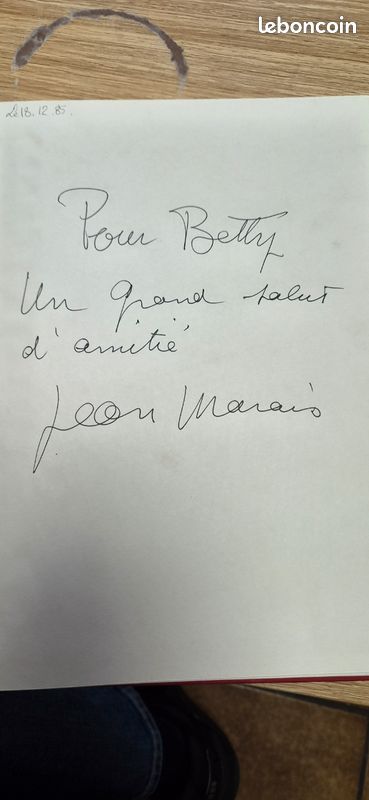 leboncoin
Le 18.12.85.
Pour Betty
Un grand salut
d'amitié
Jean Marais